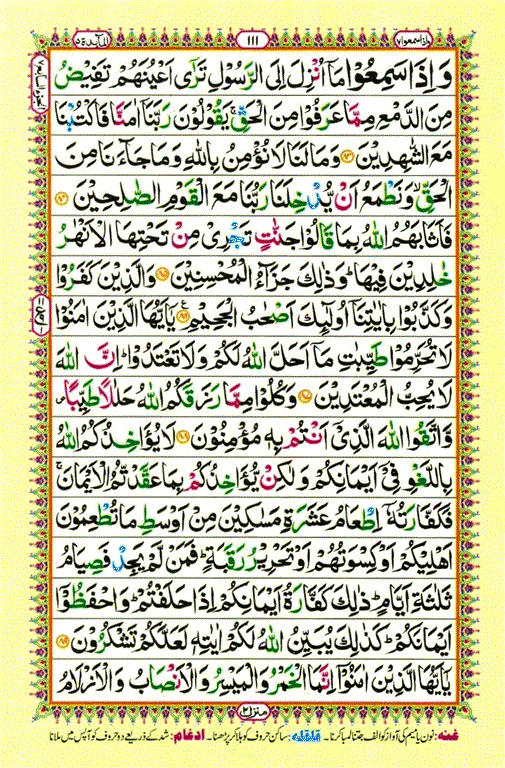 واذاسمعوا٧
١١١
المآئدة٥
وَ اِذَا سَمِعُوۡا مَاۤ اُنۡزِلَ اِلَى الرَّسُوۡلِ تَرٰٓى اَعۡيُنَهُمۡ تَفِيۡضُ
مِنَ الدَّمۡعِ مِمَّا عَرَفُوۡا مِنَ الۡحَـقِّ‌ۚ يَقُوۡلُوۡنَ رَبَّنَاۤ اٰمَنَّا فَاكۡتُبۡنَا
مَعَ الشّٰهِدِيۡنَ ﴿٨٣﴾ وَمَا لَـنَا لَا نُؤۡمِنُ بِاللّٰهِ وَمَا جَآءَنَا مِنَ
الۡحَـقِّۙ وَنَطۡمَعُ اَنۡ يُّدۡخِلَـنَا رَبُّنَا مَعَ الۡقَوۡمِ الصّٰلِحِيۡنَ ﴿٨٤﴾
فَاَثَابَهُمُ اللّٰهُ بِمَا قَالُوۡا جَنّٰتٍ تَجۡرِىۡ مِنۡ تَحۡتِهَا الۡاَنۡهٰرُ
خٰلِدِيۡنَ فِيۡهَا‌ ؕ وَذٰلِكَ جَزَآءُ الۡمُحۡسِنِيۡنَ ﴿٨٥﴾ وَالَّذِيۡنَ كَفَرُوۡا
وَكَذَّبُوۡا بِاٰيٰتِنَاۤ اُولٰٓئِكَ اَصۡحٰبُ الۡجَحِيۡمِ ﴿٨٦﴾ يٰۤـاَيُّهَا الَّذِيۡنَ اٰمَنُوۡا
لَا تُحَرِّمُوۡا طَيِّبٰتِ مَاۤ اَحَلَّ اللّٰهُ لَـكُمۡ وَلَا تَعۡتَدُوۡا‌ ؕ اِنَّ اللّٰهَ
لَا يُحِبُّ الۡمُعۡتَدِيۡنَ ﴿٨٧﴾ وَكُلُوۡا مِمَّا رَزَقَكُمُ اللّٰهُ حَلٰلًا طَيِّبًا‌
وَّاتَّقُوا اللّٰهَ الَّذِىۡۤ اَنۡـتُمۡ بِهٖ مُؤۡمِنُوۡنَ ﴿٨٨﴾ لَا يُؤَاخِذُكُمُ اللّٰهُ
بِاللَّغۡوِ فِىۡۤ اَيۡمَانِكُمۡ وَلٰـكِنۡ يُّؤَاخِذُكُمۡ بِمَا عَقَّدْتُّمُ الۡاَيۡمَانَ‌ ۚ
فَكَفَّارَتُهٗۤ اِطۡعَامُ عَشَرَةِ مَسٰكِيۡنَ مِنۡ اَوۡسَطِ مَا تُطۡعِمُوۡنَ
اَهۡلِيۡكُمۡ اَوۡ كِسۡوَتُهُمۡ اَوۡ تَحۡرِيۡرُ رَقَبَةٍ‌ ؕ فَمَنۡ لَّمۡ يَجِدۡ فَصِيَامُ
ثَلٰثَةِ اَيَّامٍ‌ ؕ ذٰلِكَ كَفَّارَةُ اَيۡمَانِكُمۡ اِذَا حَلَفۡتُمۡ‌ ؕ وَاحۡفَظُوۡۤا
اَيۡمَانَكُمۡ‌ ؕ كَذٰلِكَ يُبَيِّنُ اللّٰهُ لَـكُمۡ اٰيٰتِهٖ لَعَلَّكُمۡ تَشۡكُرُوۡنَ ﴿٨٩﴾
يٰۤاَيُّهَا الَّذِيۡنَ اٰمَنُوۡۤا اِنَّمَا الۡخَمۡرُ وَالۡمَيۡسِرُ وَالۡاَنۡصَابُ وَالۡاَزۡلَامُ
منزل٢
غنہ: نون یا میم کی آواز کو الف جتنا لمبا کرنا۔ قلقلہ: ساکن حروف کو ہلا کر پڑھنا۔ ادغام: شد کے ذریعے دو حروف کو آپس میں ملانا